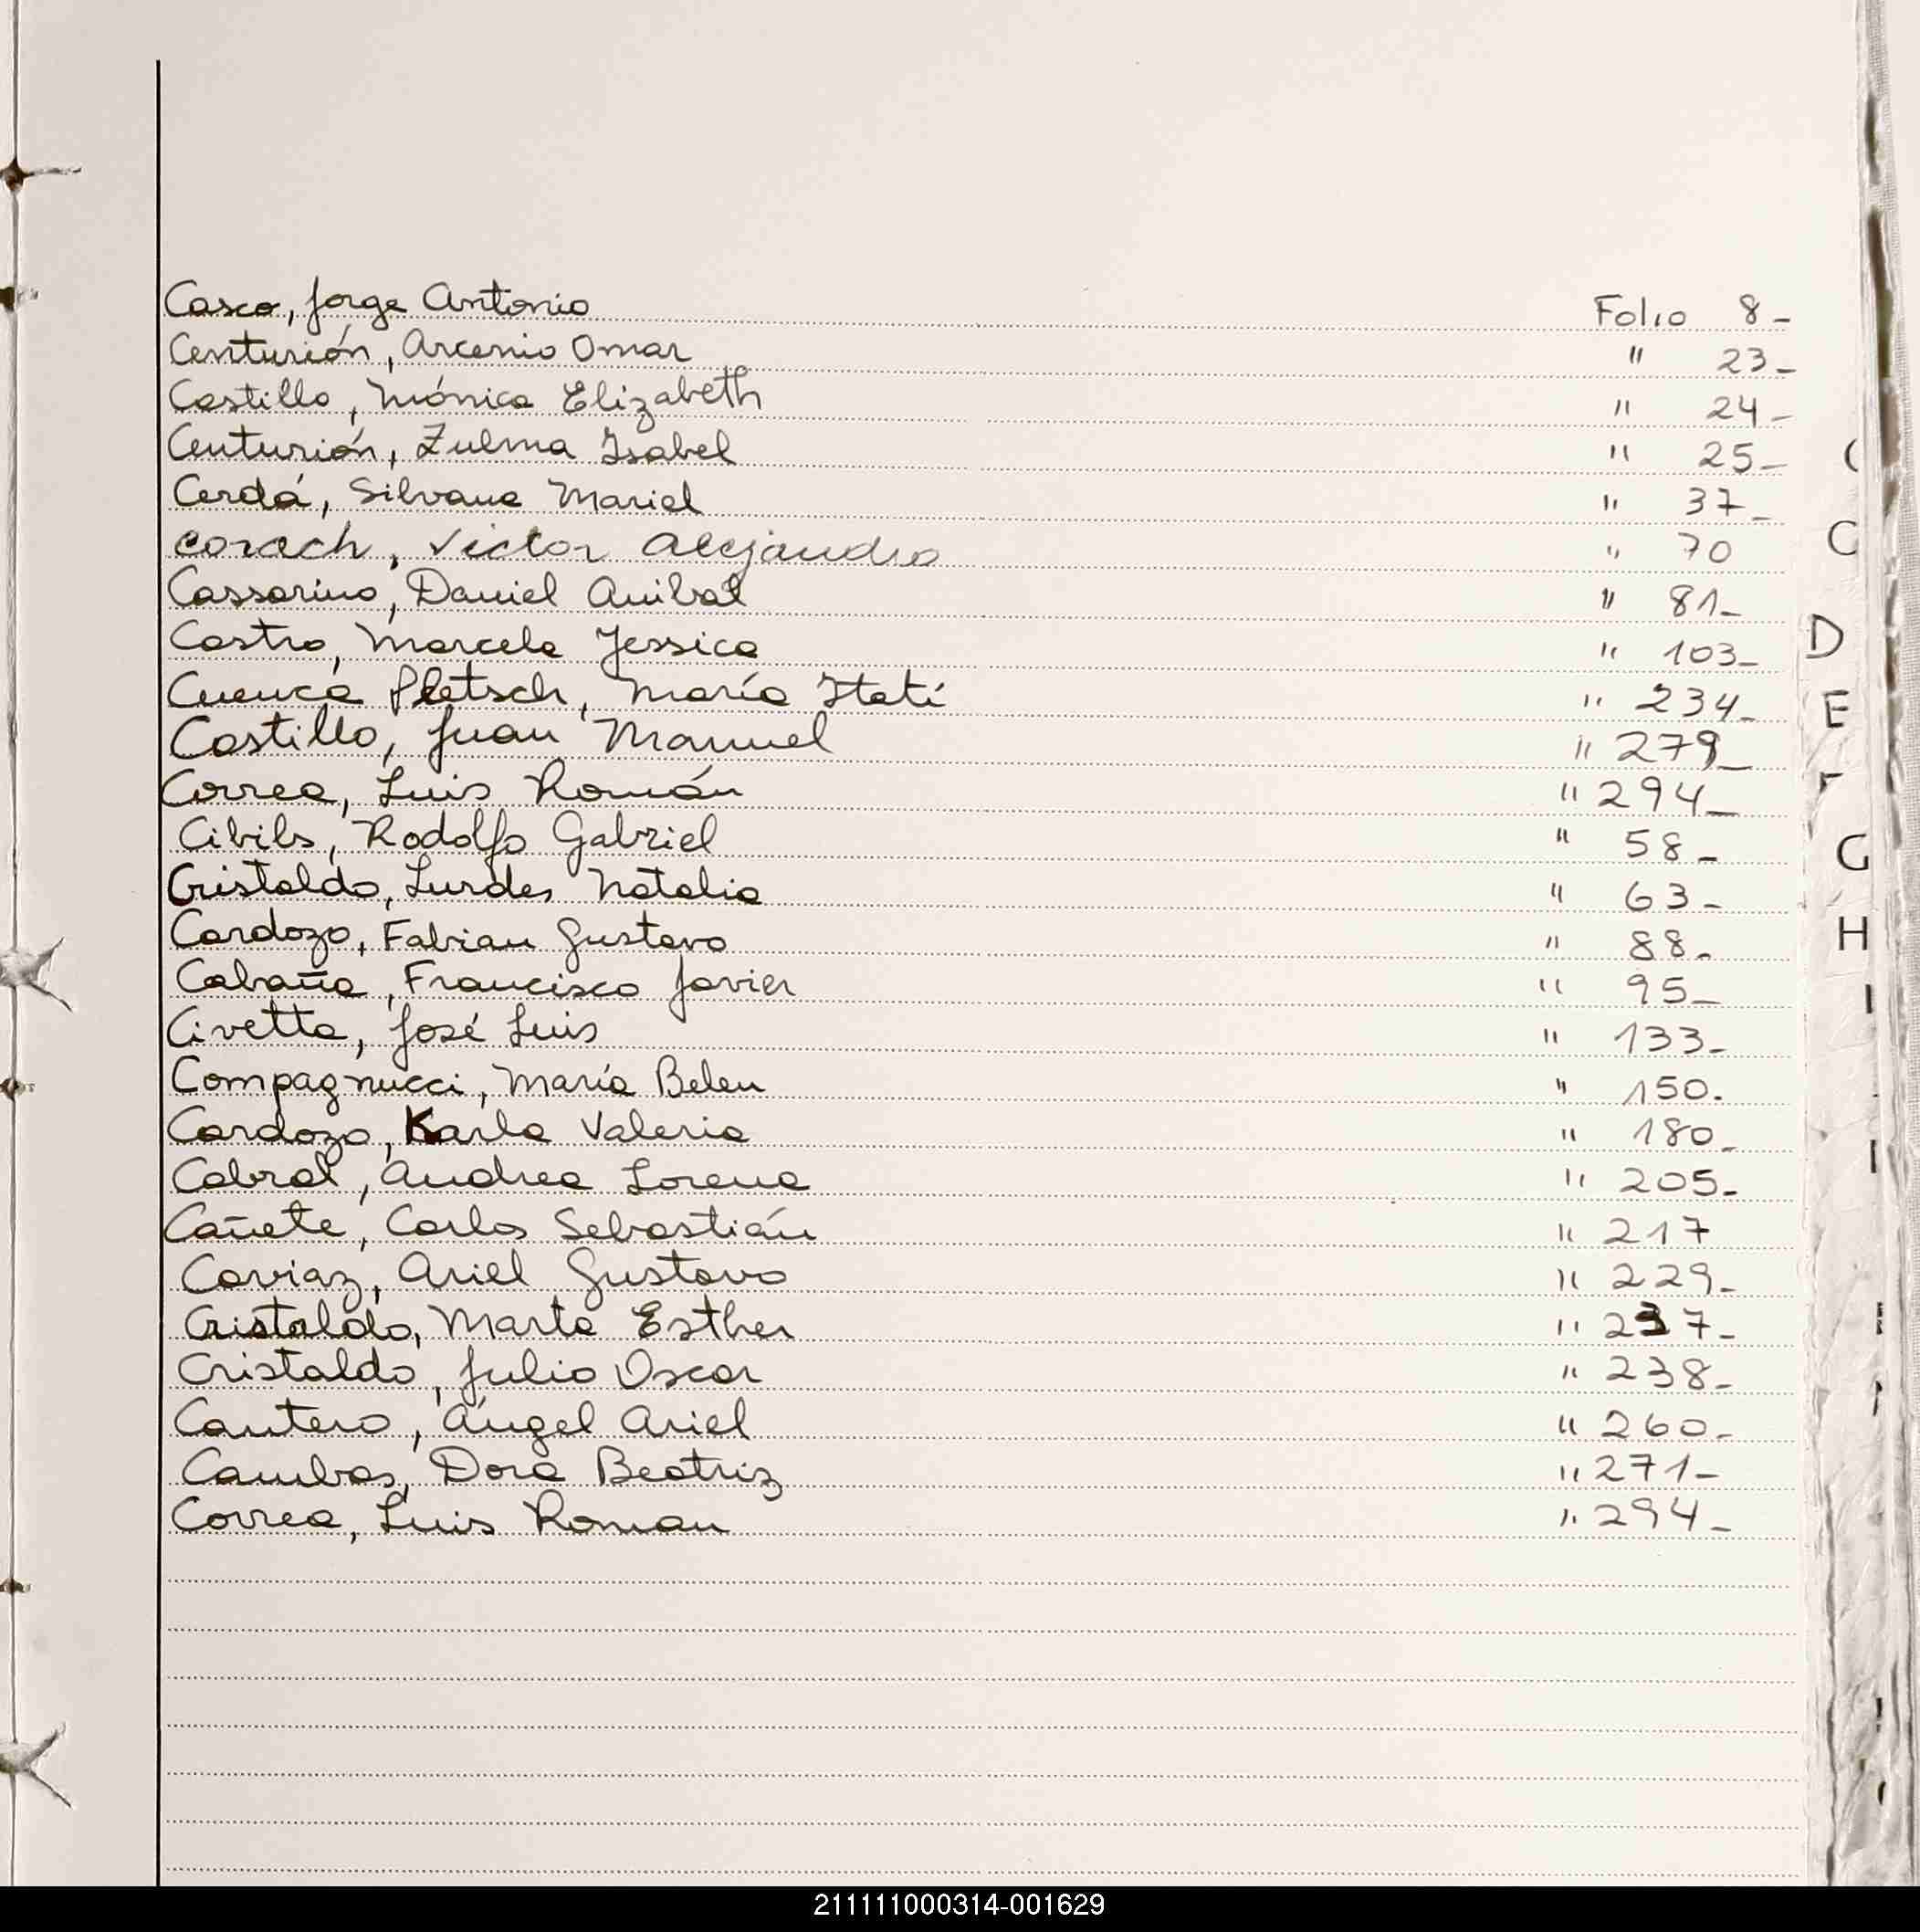 Casco, Jorge Antonio Folio 8-
Centurión, Arcenio Omar " 23-
Castillo, Mónica Elizabeth " 24-
Centurión, Zulma Isabel " 25-
Cerdá, Silvana Mariel " 37-
Corach, Victor Alejandro " 70
Cassarino, Daniel Anibal " 81-
Castro, Marcela Jessica " 103-
Cuenca Pletsch, María Itatí " 234-
Castillo, Juan Manuel " 279-
Correa, Luis Román " 294-
Cibils, Rodolfo Gabriel " 58-
Cristaldo, Lurdes Natalia " 63-
Cardozo, Fabian Gustavo " 88-
Cabaña, Francisco Javier " 95-
Civetta, José Luis " 133-
Compagnucci, María Belen " 150.
Cardozo, Karla Valeria " 180-
Cabral, Andrea Lorena " 205-
Cañete, Carlos Sebastián " 217
Caviaz, Ariel Gustavo " 229-
Cristaldo, Marta Esther " 237-
Cristaldo, Julio Oscar " 238-
Cantero, Ángel Ariel " 260-
Cambas, Dora Beatriz " 271-
Correa, Luis Roman " 294-
C
D
E
F
G
H
I
211111000314-001629